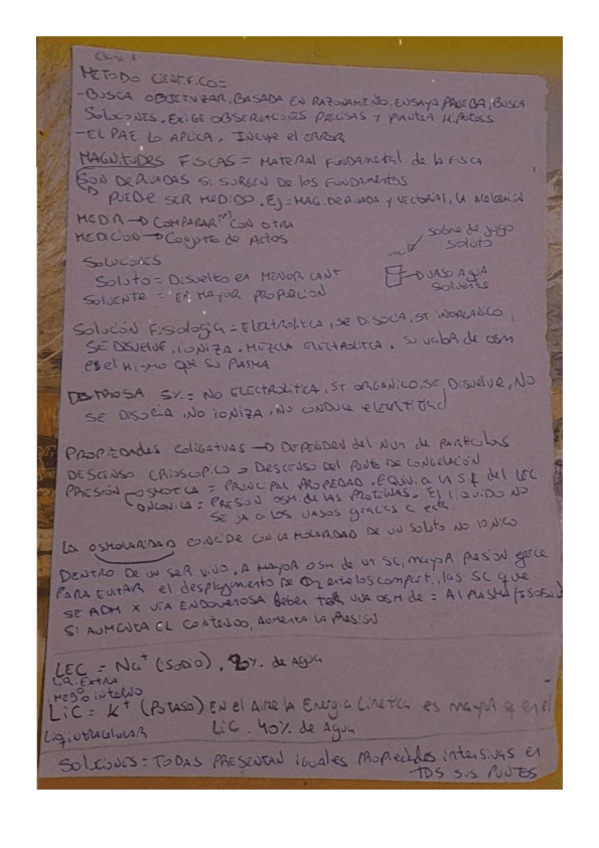 Clase 1
METODO CIENTIFICO=
-BUSCA OBJETIVIZAR, BASADA EN RAZONAMIENTO. ENSAYA PRUEBA, BUSCA
SOLUCIONES. EXIGE OBSERVACIONES PRECISAS Y PLANTEA HIPOTESIS
-EL PAE LO APLICA. INCLUYE el ERROR
MAGNITUDES FISICAS = MATERIAL FUNDAMENTAL de la FISICA
SON DERIVADAS SI SURGEN DE los FUNDAMENTOS
PUEDE SER MEDIDO. Ej= MAG. DERIVADA y VECTORIAL, LA ACELERACION
MEDIR → COMPARAR CON OTRA
MEDICION → Conjunto de ACTOS
sobre de jugo
soluto
SOLUCIONES
Soluto = Disuelto en MENOR CANT
→ VASO AGUA
Solvente
SOLVENTE = EN MAYOR PROPORCION
Solución Fisiologia = ELECTROLITICA, SE DISOCIA, ST INORGANICO,
SE DISUELVE, IONIZA. MEZCLA ELECTROLITICA. SU valor de osm
es el mismo que su PLASMA
DEXTROSA 5% = NO ELECTROLITICA, ST ORGANICO, SE DISUELVE, NO
SE DISOCIA, NO IONIZA, NO CONDUCE electricidad
PROPIEDADES COLIGATIVAS → DEPENDEN del NUM de PARTICULAS
DESCENSO CRIOSCOPICO → DESCENSO DEL PUNTO DE CONGELACION
PRESION OSMOTICA = PRINCIPAL PROPIEDAD. EQUIV. a la del LEC
ONCOTICA = PRESION OSM. de las PROTEINAS. El liquido NO
SE VA A LOS VASOS gracias a esta
LA OSMOLARIDAD COINCIDE CON LA MOLARIDAD DE UN SOLUTO NO IONICO
DENTRO DE UN SER VIVO, A MAYOR OSM de un SC, mayor PRESION ejerce
PARA EVITAR el desplazamiento DE entre los compart., las SC que
SE ADM X VIA ENDOVENOSA deben TENER UNA OSM de = Al PLASMA
SI AUMENTA EL CONTENIDO, AUMENTA LA PRESION
LEC = Na+ (SODIO), 20% de AGUA
LIQ. EXTRA
MEDIO INTERNO
LIC = K+ (POTASIO) EN el AIRE la Energia Cinetica es mayor q en el
LIQ INTRACELULAR
LIC. 40% de Agua
SOLUCIONES = TODAS PRESENTAN iguales PROPIEDADES intensivas en
TDS SUS PUNTOS